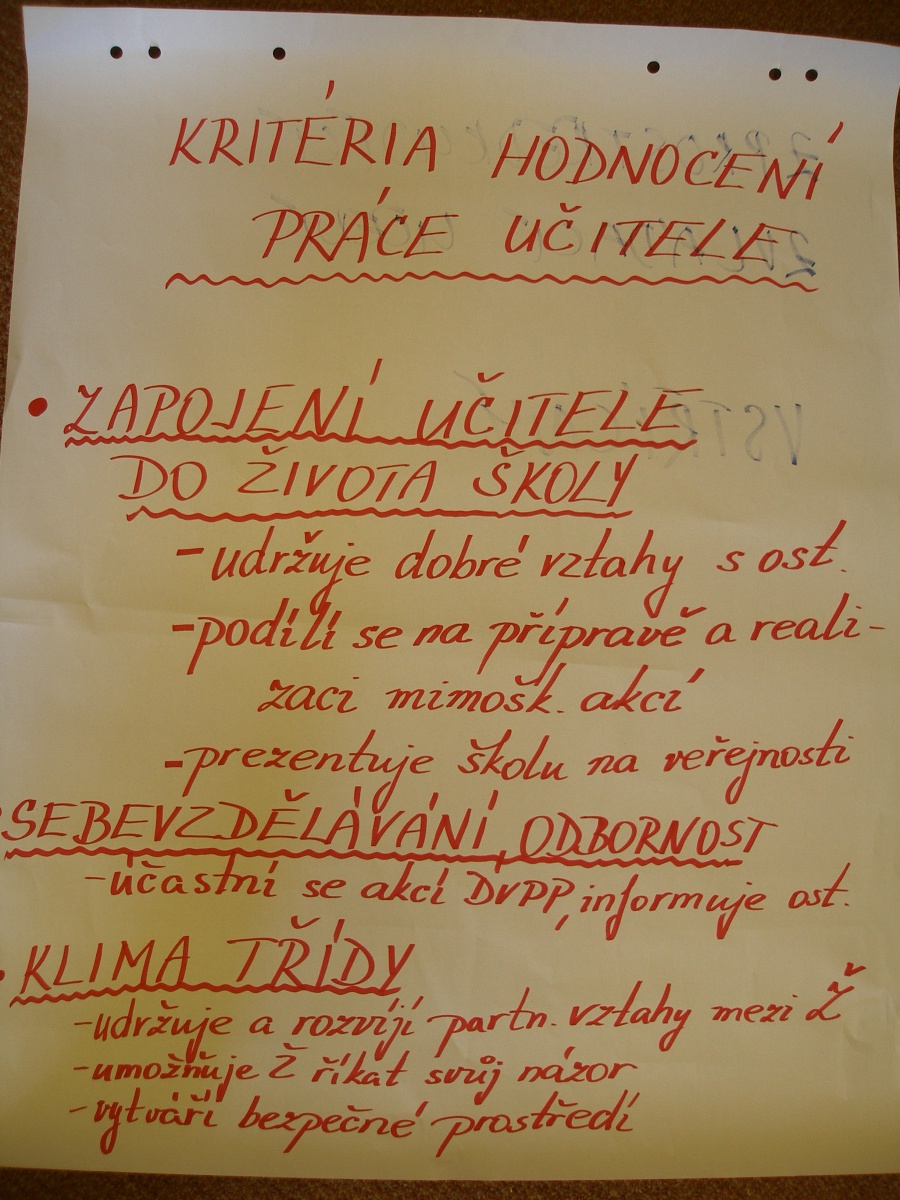 KRITÉRIA HODNOCENÍ
PRÁCE UČITELE
• ZAPOJENÍ UČITELE
DO ŽIVOTA ŠKOLY
- udržuje dobré vztahy s ost.
- podílí se na přípravě a reali-
zaci mimošk. akcí
- prezentuje školu na veřejnosti
SEBEVZDĚLÁVÁNÍ, ODBORNOST
- účastní se akcí DVPP, informuje ost.
• KLIMA TŘÍDY
- udržuje a rozvíjí partn. vztahy mezi Ž
- umožňuje Ž říkat svůj názor
- vytváří bezpečné prostředí